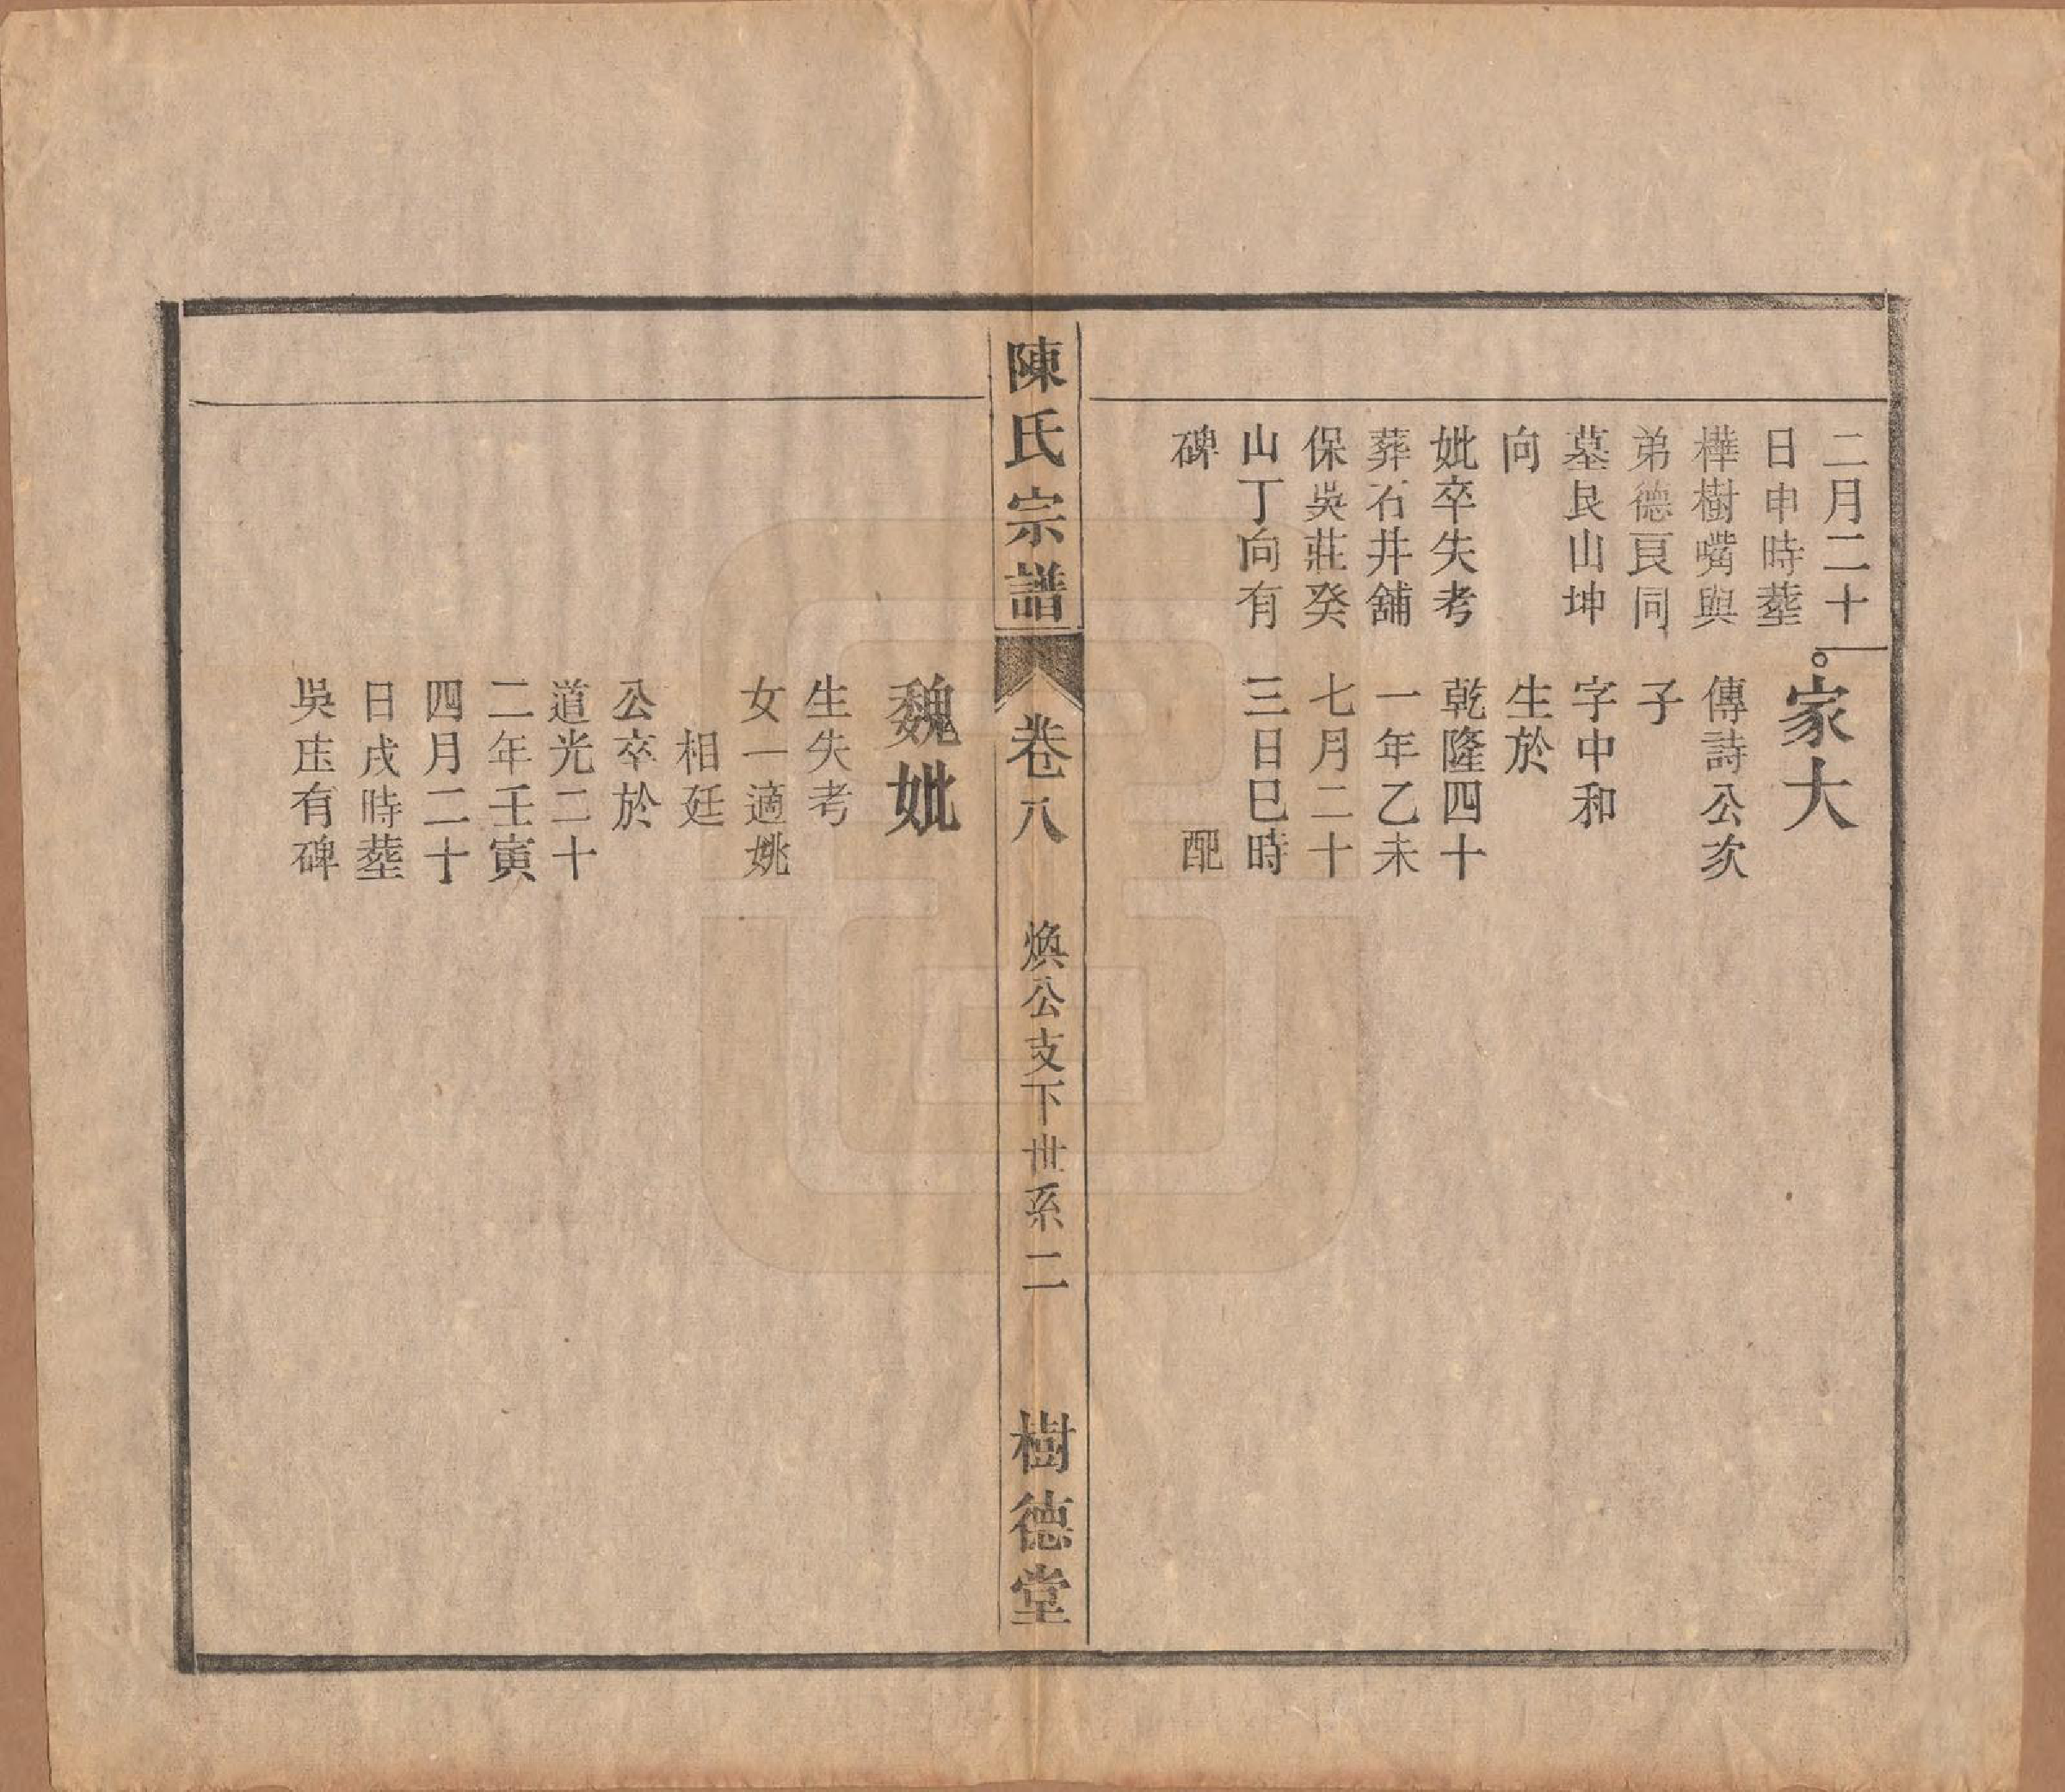 二月二十
日申時塟
樺樹嘴與
弟德艮同
墓艮山坤
向
妣卒失考
葬石井舖
保吳莊癸
山丁向有
碑
家大
傳詩公次
子
字中和
生於
乾隆四十
一年乙未
七月二十
三日巳時
配
陳氏宗譜
卷八
煥公支下世系二
樹德堂
魏妣
生失考
女一適姚
相廷
公卒於
道光二十
二年壬寅
四月二十
日戌時塟
吳庄有碑